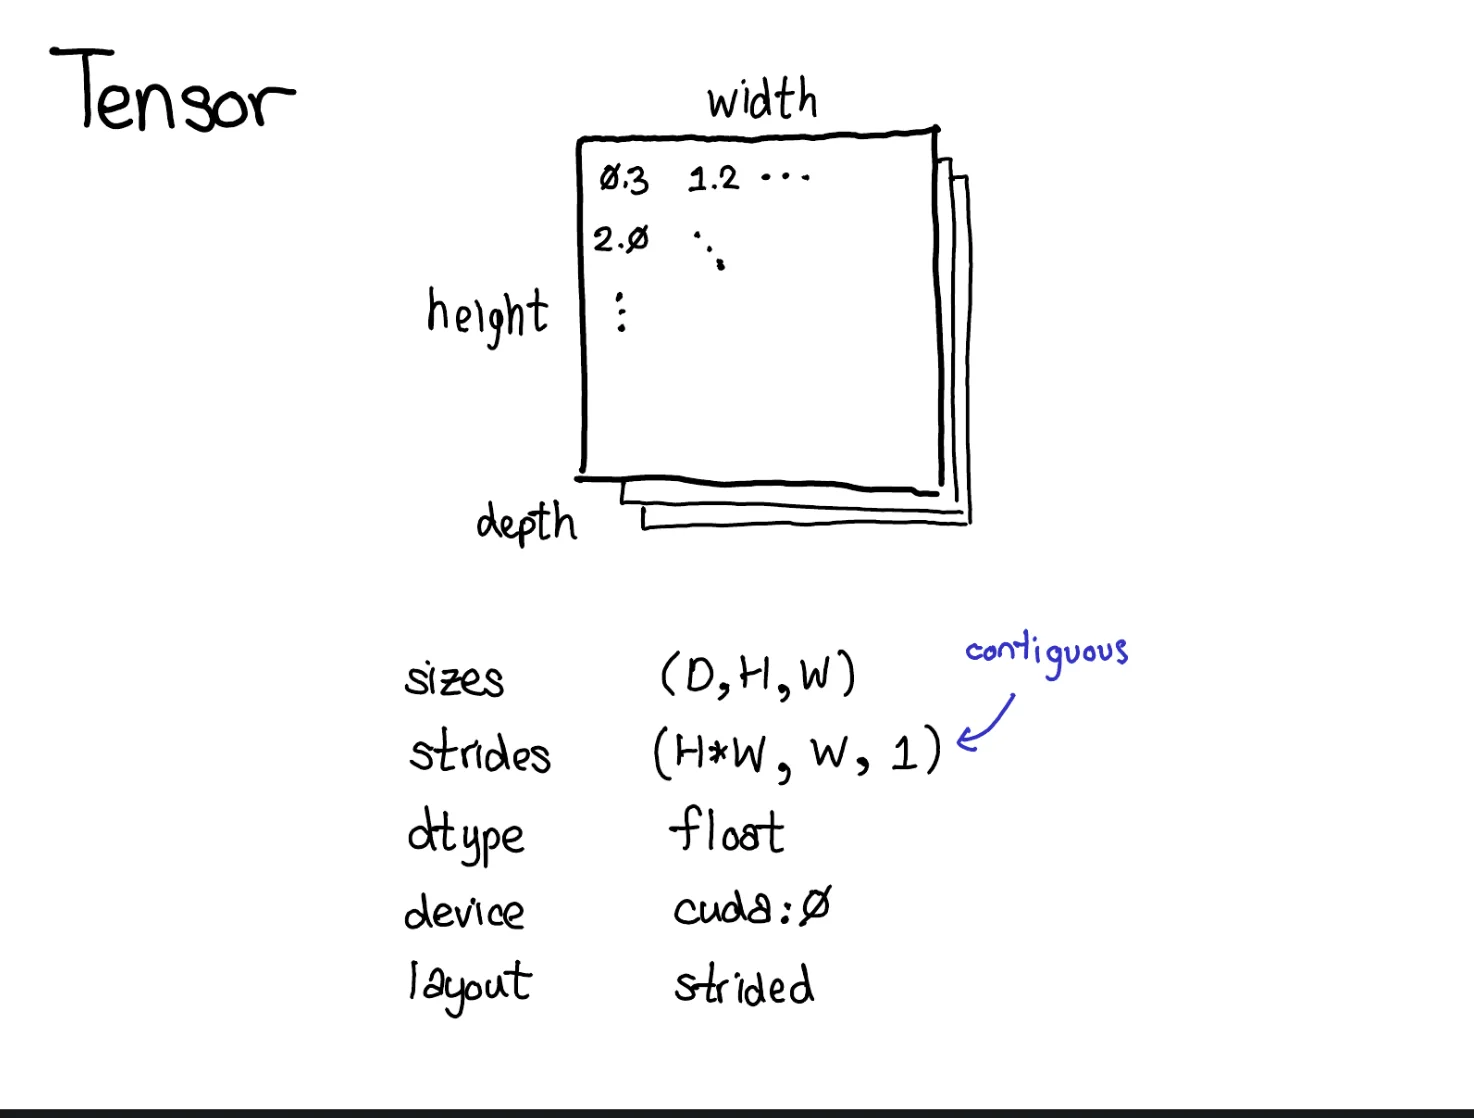 Tensor
width
0.3 1.2 ...
2.0
height
depth
contiguous
sizes (D,H,W)
strides (H*W, W, 1)
dtype float
device cuda:0
layout strided